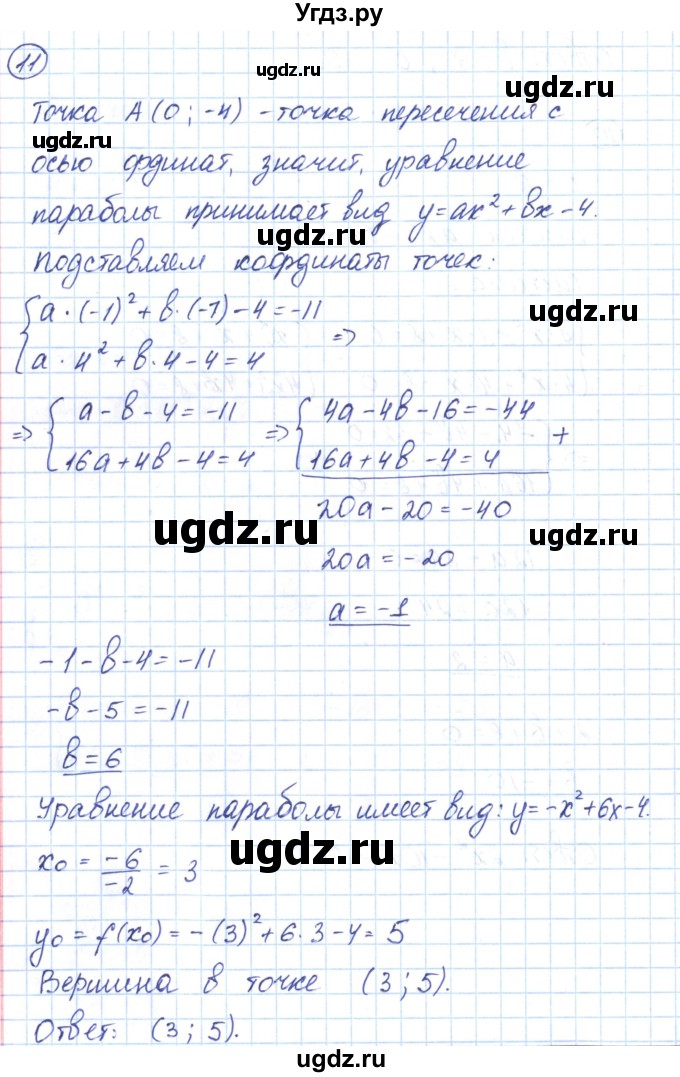 Угдз.ру
11
ugdz.ru
ugdz.ru
Точка A(0; -4) - точка пересечения с
ugdz.ru
осью ординат, значит, уравнение
параболы принимает вид y=ax²+bx-4.
ugdz.ru
Подставляем координаты точек:
{a·(-1)²+b·(-1)-4=-11
ugdz.ru
a·4²+b·4-4=4 =>
=> {a-b-4=-11 => {4a-4b-16=-44
16a+4b-4=4 16a+4b-4=4 +
20a-20=-40
ugdz.ru
ugdz.ru
20a=-20
a=-1
-1-b-4=-11
-b-5=-11
b=6
ugdz.ru
ugdz.ru
Уравнение параболы имеет вид: y=-x²+6x-4.
x₀ = -6/-2 = 3
ugdz.ru
y₀=f(x₀)=-(3)²+6·3-4=5
Вершина в точке (3; 5).
ugdz.ru
ugdz.ru
Ответ: (3; 5).
ugdz.ru